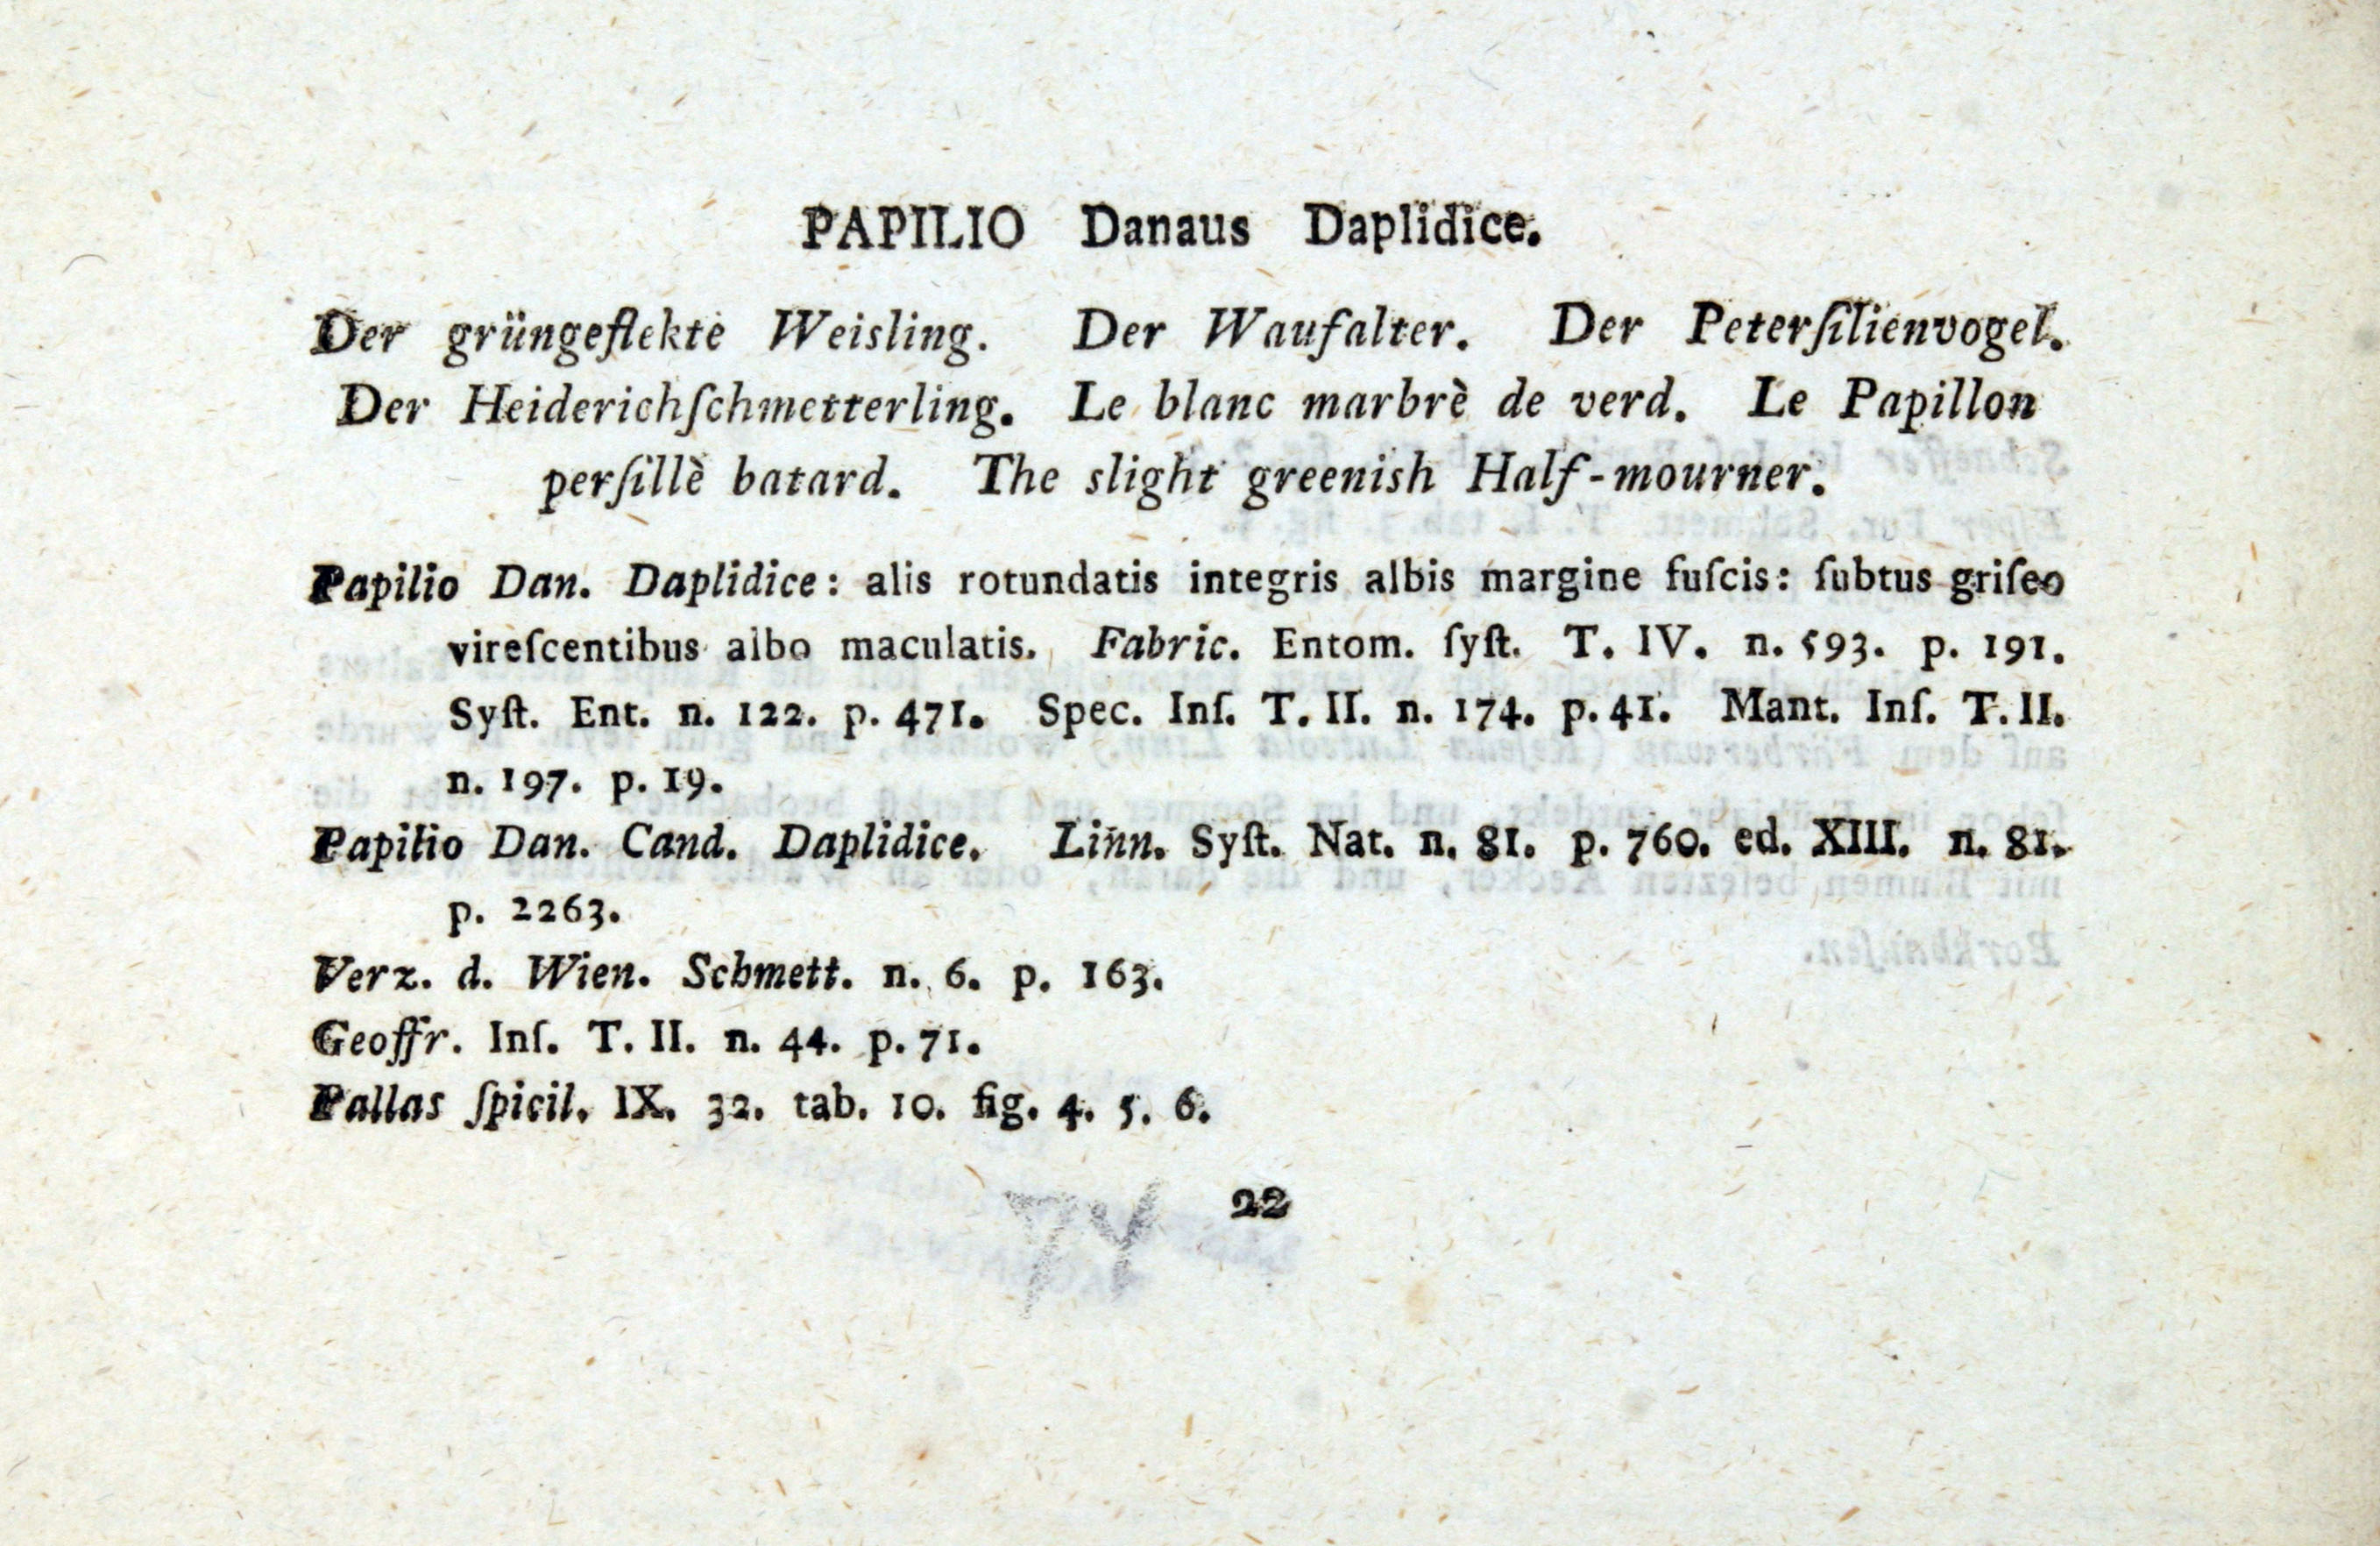 PAPILIO Danaus Daplidice.
Der grüngeflekte Weisling. Der Waufalter. Der Peterſilienvogel.
Der Heiderichſchmetterling. Le blanc marbrè de verd. Le Papillon
perſillè batard. The slight greenish Half-mourner.
Papilio Dan. Daplidice: alis rotundatis integris albis margine fuſcis: ſubtus griſeo
vireſcentibus albo maculatis. Fabric. Entom. ſyſt. T. IV. n. 593. p. 191.
Syſt. Ent. n. 122. p. 471. Spec. Inſ. T. II. n. 174. p. 41. Mant. Inſ. T. II.
n. 197. p. 19.
Papilio Dan. Cand. Daplidice. Linn. Syſt. Nat. n. 81. p. 760. ed. XIII. n. 81.
p. 2263.
Verz. d. Wien. Schmett. n. 6. p. 163.
Geoffr. Inſ. T. II. n. 44. p. 71.
Pallas ſpicil. IX. 32. tab. 10. fig. 4. 5. 6.
22